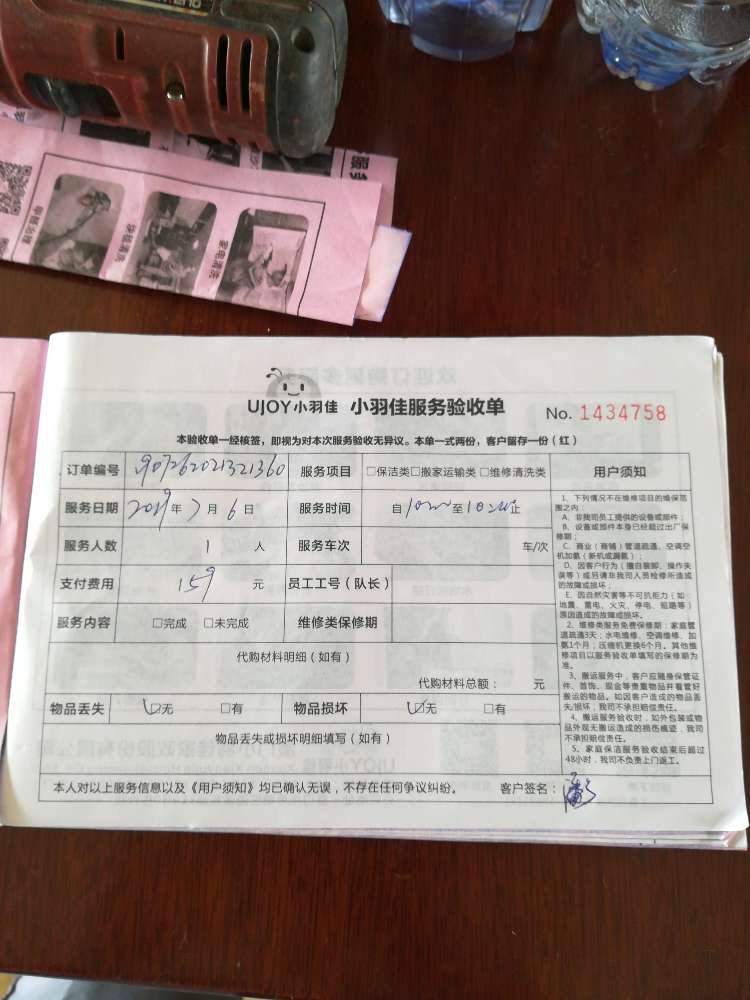 家电清洗
UJOY小羽佳 小羽佳服务验收单 No. 1434758
本验收单一经核签，即视为对本次服务验收无异议。本单一式两份，客户留存一份（红）
订单编号 907262021321360 服务项目 □保洁类□搬家运输类□维修清洗类 用户须知
服务日期 2019年7月6日 服务时间 自 至 止
服务人数 1 人 服务车次 车/次
支付费用 159 元 员工工号（队长）
服务内容 □完成 □未完成 维修类保修期
代购材料明细（如有）
代购材料总额： 元
物品丢失 ☑无 □有 物品损坏 ☑无 □有
物品丢失或损坏明细填写（如有）
本人对以上服务信息以及《用户须知》均已确认无误，不存在任何争议纠纷。 客户签名：
1、下列情况不在维修项目的维保范
围之内：
A、非我司员工提供的设备或部件；
B、设备或部件本身已经超过出厂保
修期；
C、商业（商铺）管道疏通、空调空
机加氨（新机或漏氨）；
D、因客户行为（擅自装卸、操作失
误等）或另请非我司人员检修所造成
的故障或损坏；
E、因自然灾害等不可抗力（如：
地震、雷电、火灾、停电、短路等）
原因造成的故障或损坏。
2、维修类服务免费保修期：家庭管
道疏通3天；水电维修、空调维修、加
氨1个月；压缩机更换6个月。其他维
修项目以服务验收单填写的保修期为
准。
3、搬运服务中，客户应随身保管证
件、首饰、现金等贵重物品并看管好
搬运的物品。如因客户造成的物品丢
失/损坏，我司不承担赔偿责任。
4、搬运服务验收时，如外包装或物
品外观无搬运造成的损伤痕迹，我司
不承担赔偿责任。
5、家庭保洁服务验收结束后超过
48小时，我司不负责上门返工。